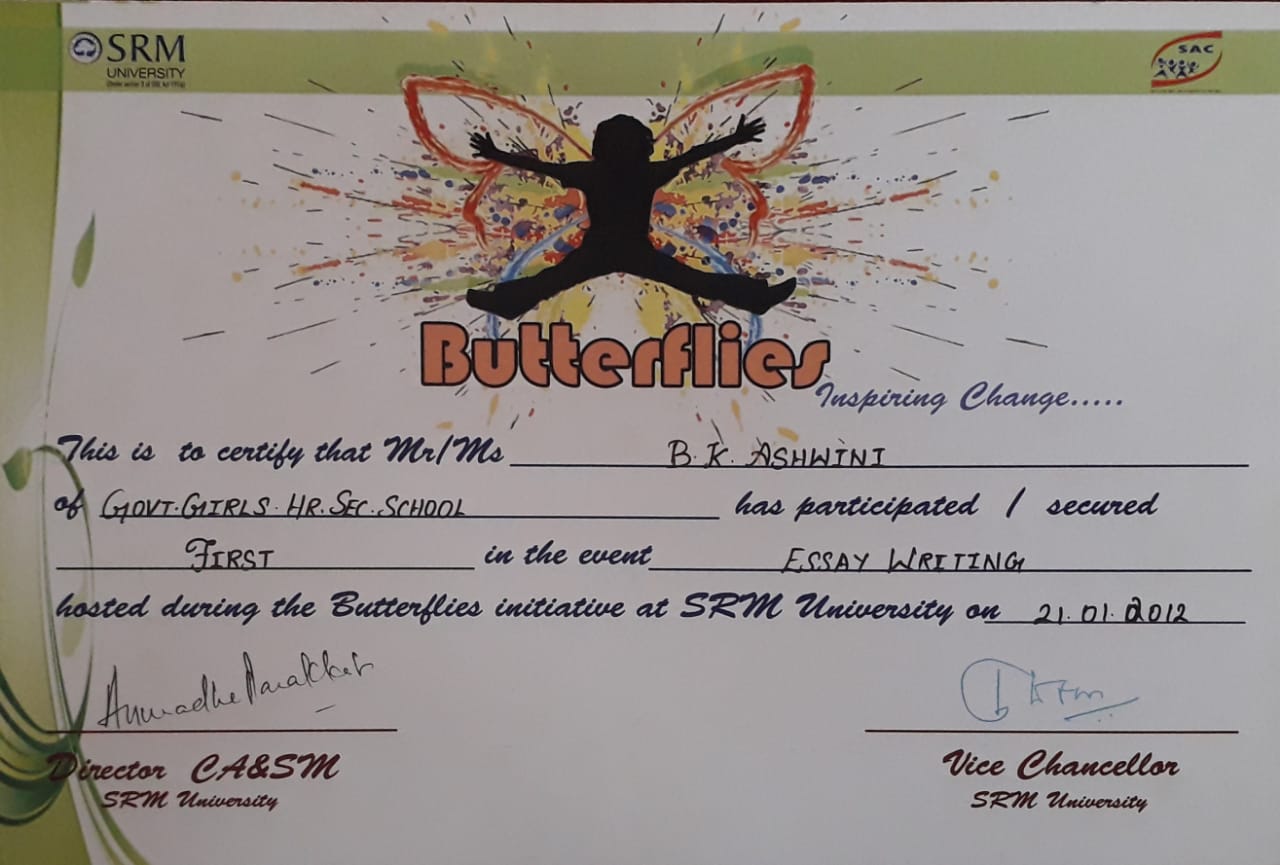 SRM
UNIVERSITY
SAC
Butterflies
Inspiring Change.....
This is to certify that Mr/Ms B.K. ASHWINI
of GOVT. GIRLS. HR. SEC. SCHOOL has participated / secured
FIRST in the event ESSAY WRITING
hosted during the Butterflies initiative at SRM University on 21.01.2012
Director CA&SM
SRM University
Vice Chancellor
SRM University